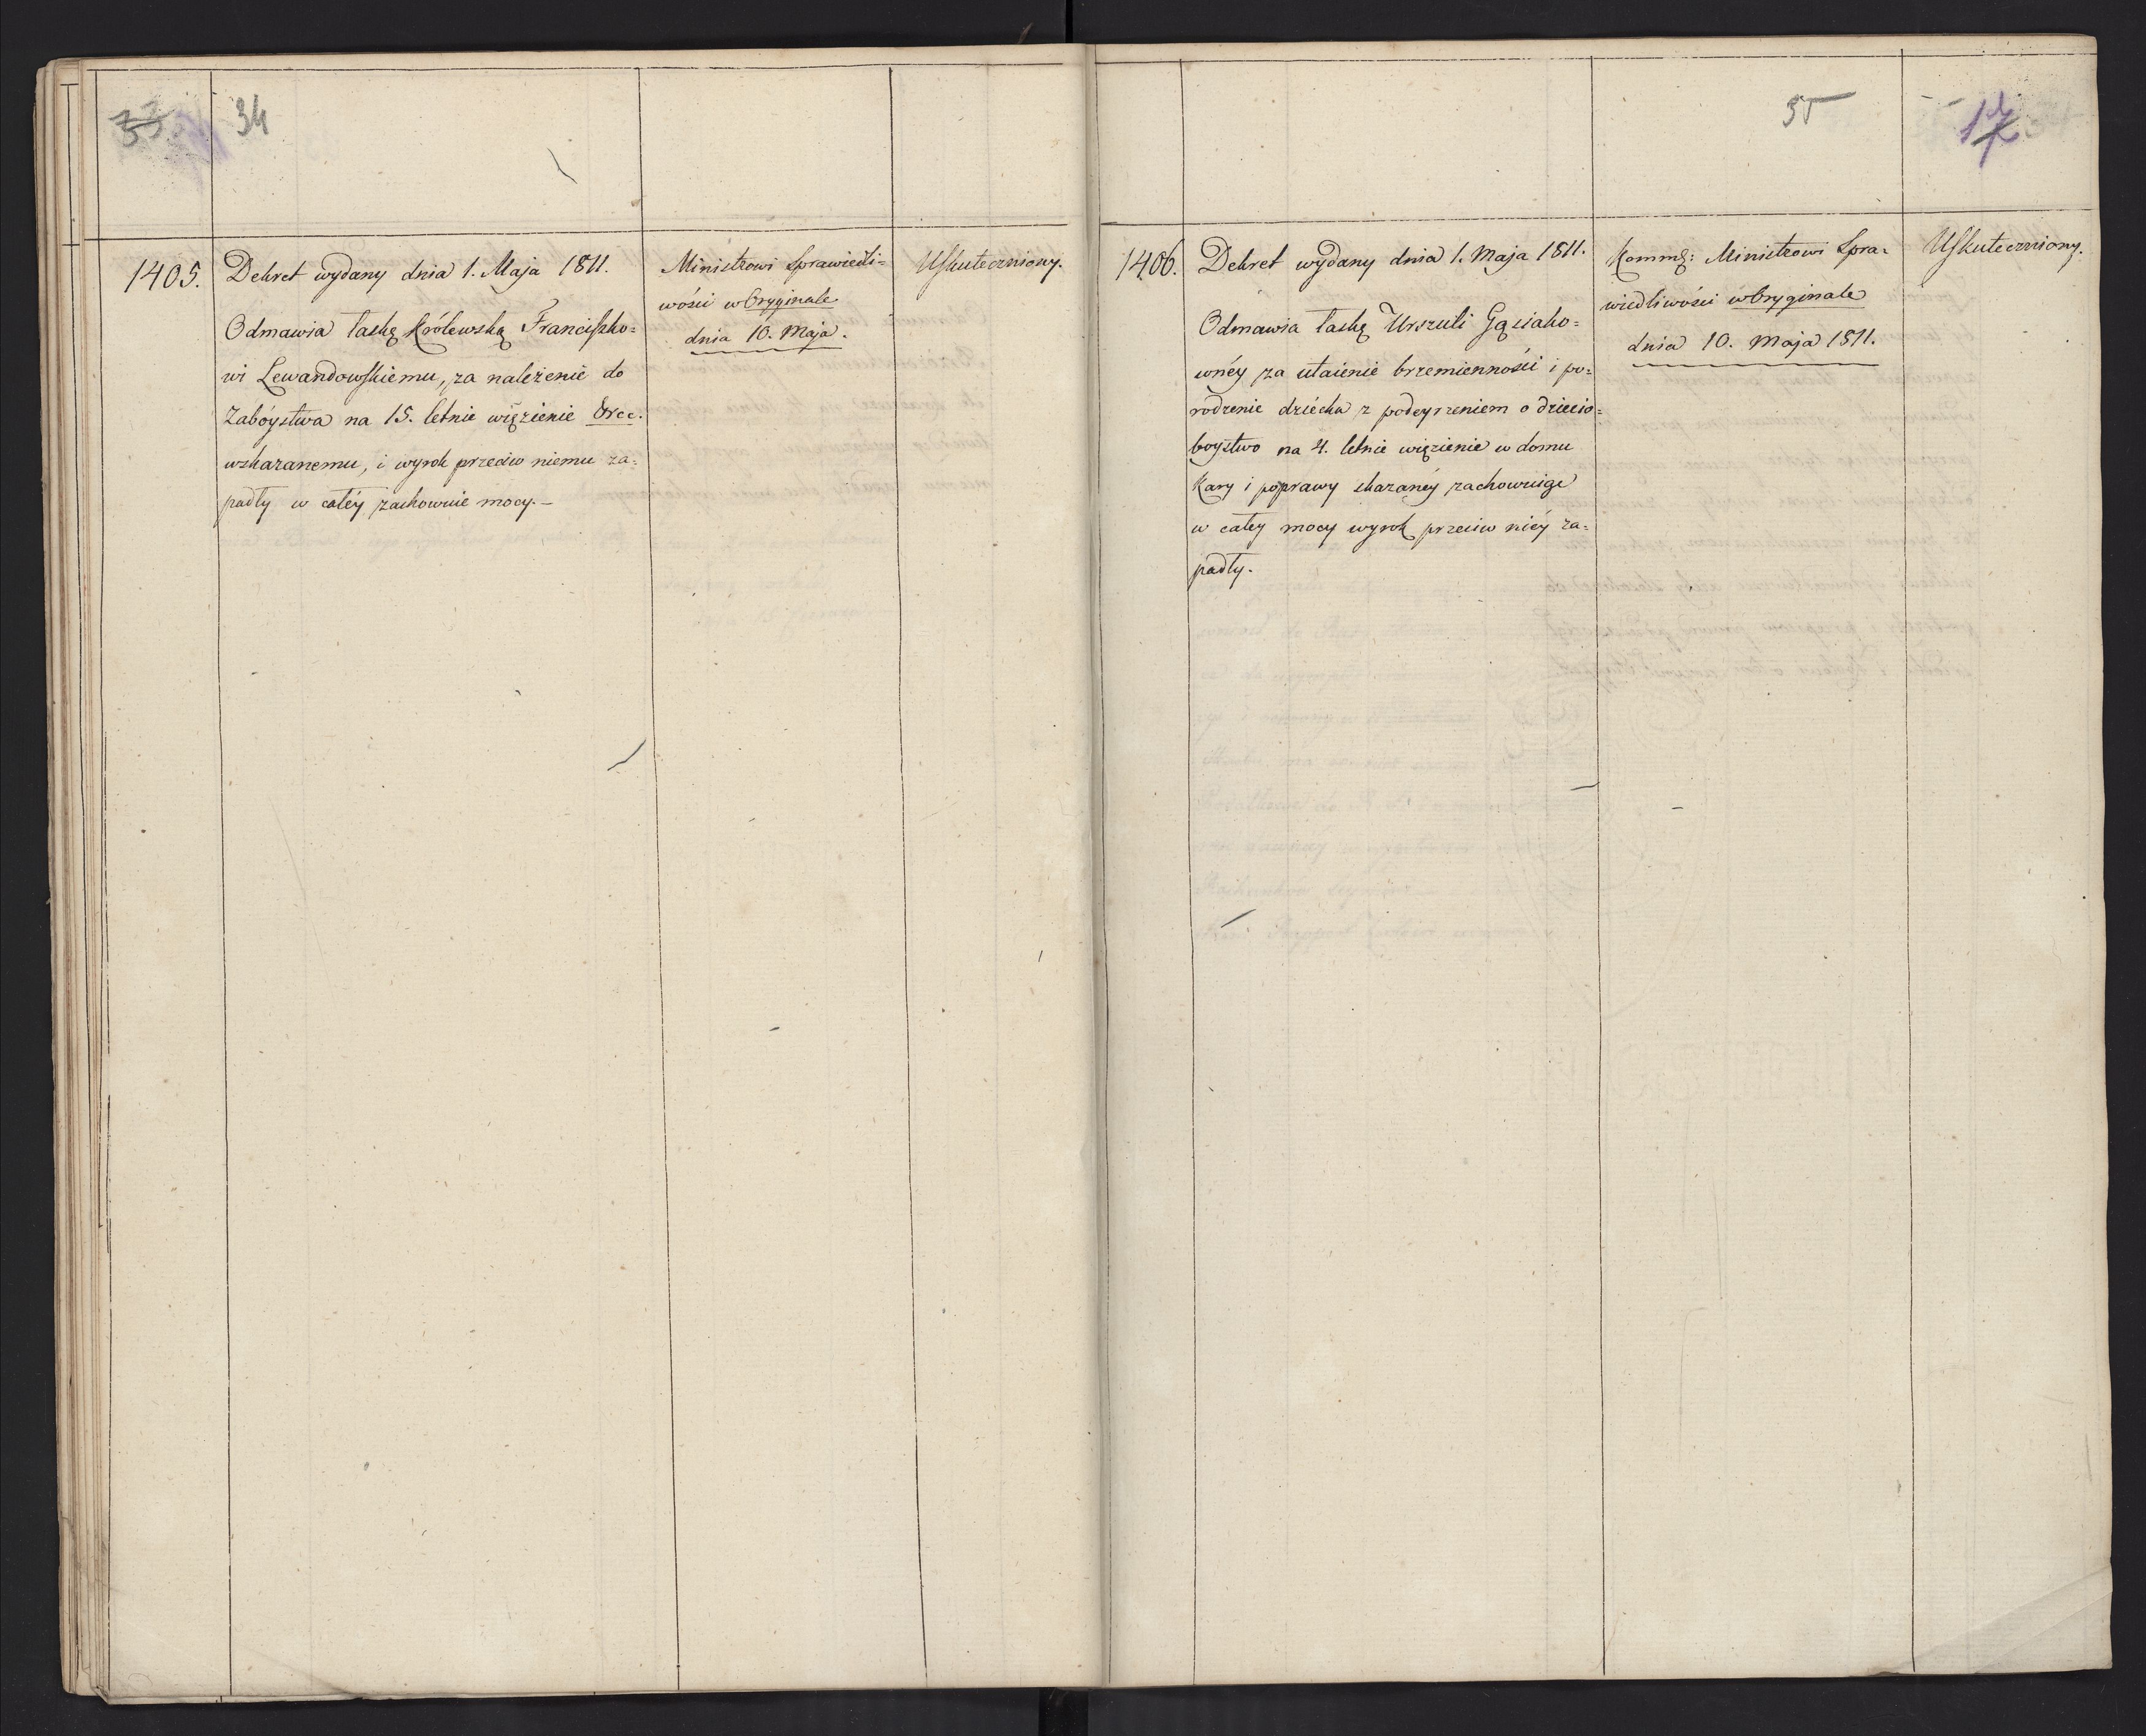 33
34
1405.
Dekret wydany dnia 1. Maja 1811.
Odmawia łaskę Królewską Franciszko=
wi Lewandowskiemu, za należenie do
Zabóystwa na 15. letnie więzienie Orcc.
wskazanemu, i wyrok przeciw niemu za=
padły w całéy zachowuie mocy.—
Ministrowi Sprawiedli=
wości w Oryginale
dnia 10. Maja.
Uskuteczniony.
35
17
1406.
Dekret wydany dnia 1. Maja 1811.
Odmawia łaskę Urszuli Gąsiako=
wnéy za utaienie brzemienności i po=
rodzenie dziécka z podeyrzeniem o dziecio=
boystwo na 4. letnie więzienie w domu
Kary i poprawy skazanéy zachowuiąc
w całey mocy wyrok przeciw niéy za=
padły.
Kommę: Ministrowi Spra=
wiedliwości w Oryginale
dnia 10. Maja 1811.
Uskuteczniony.